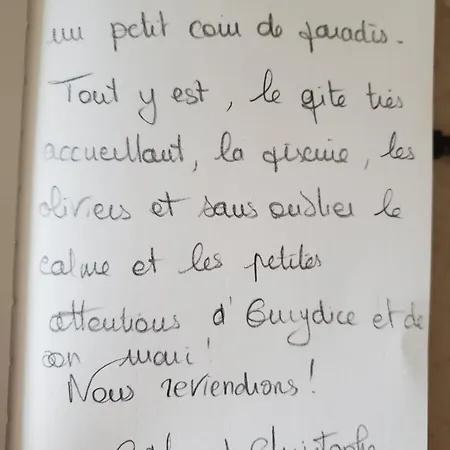 un petit coin de paradis.
Tout y est, le gite très
accueillant, la piscine, les
oliviers et sans oublier le
calme et les petites
attentions d'Eurydice et de
son mari!
Nous reviendrons!
Christophe